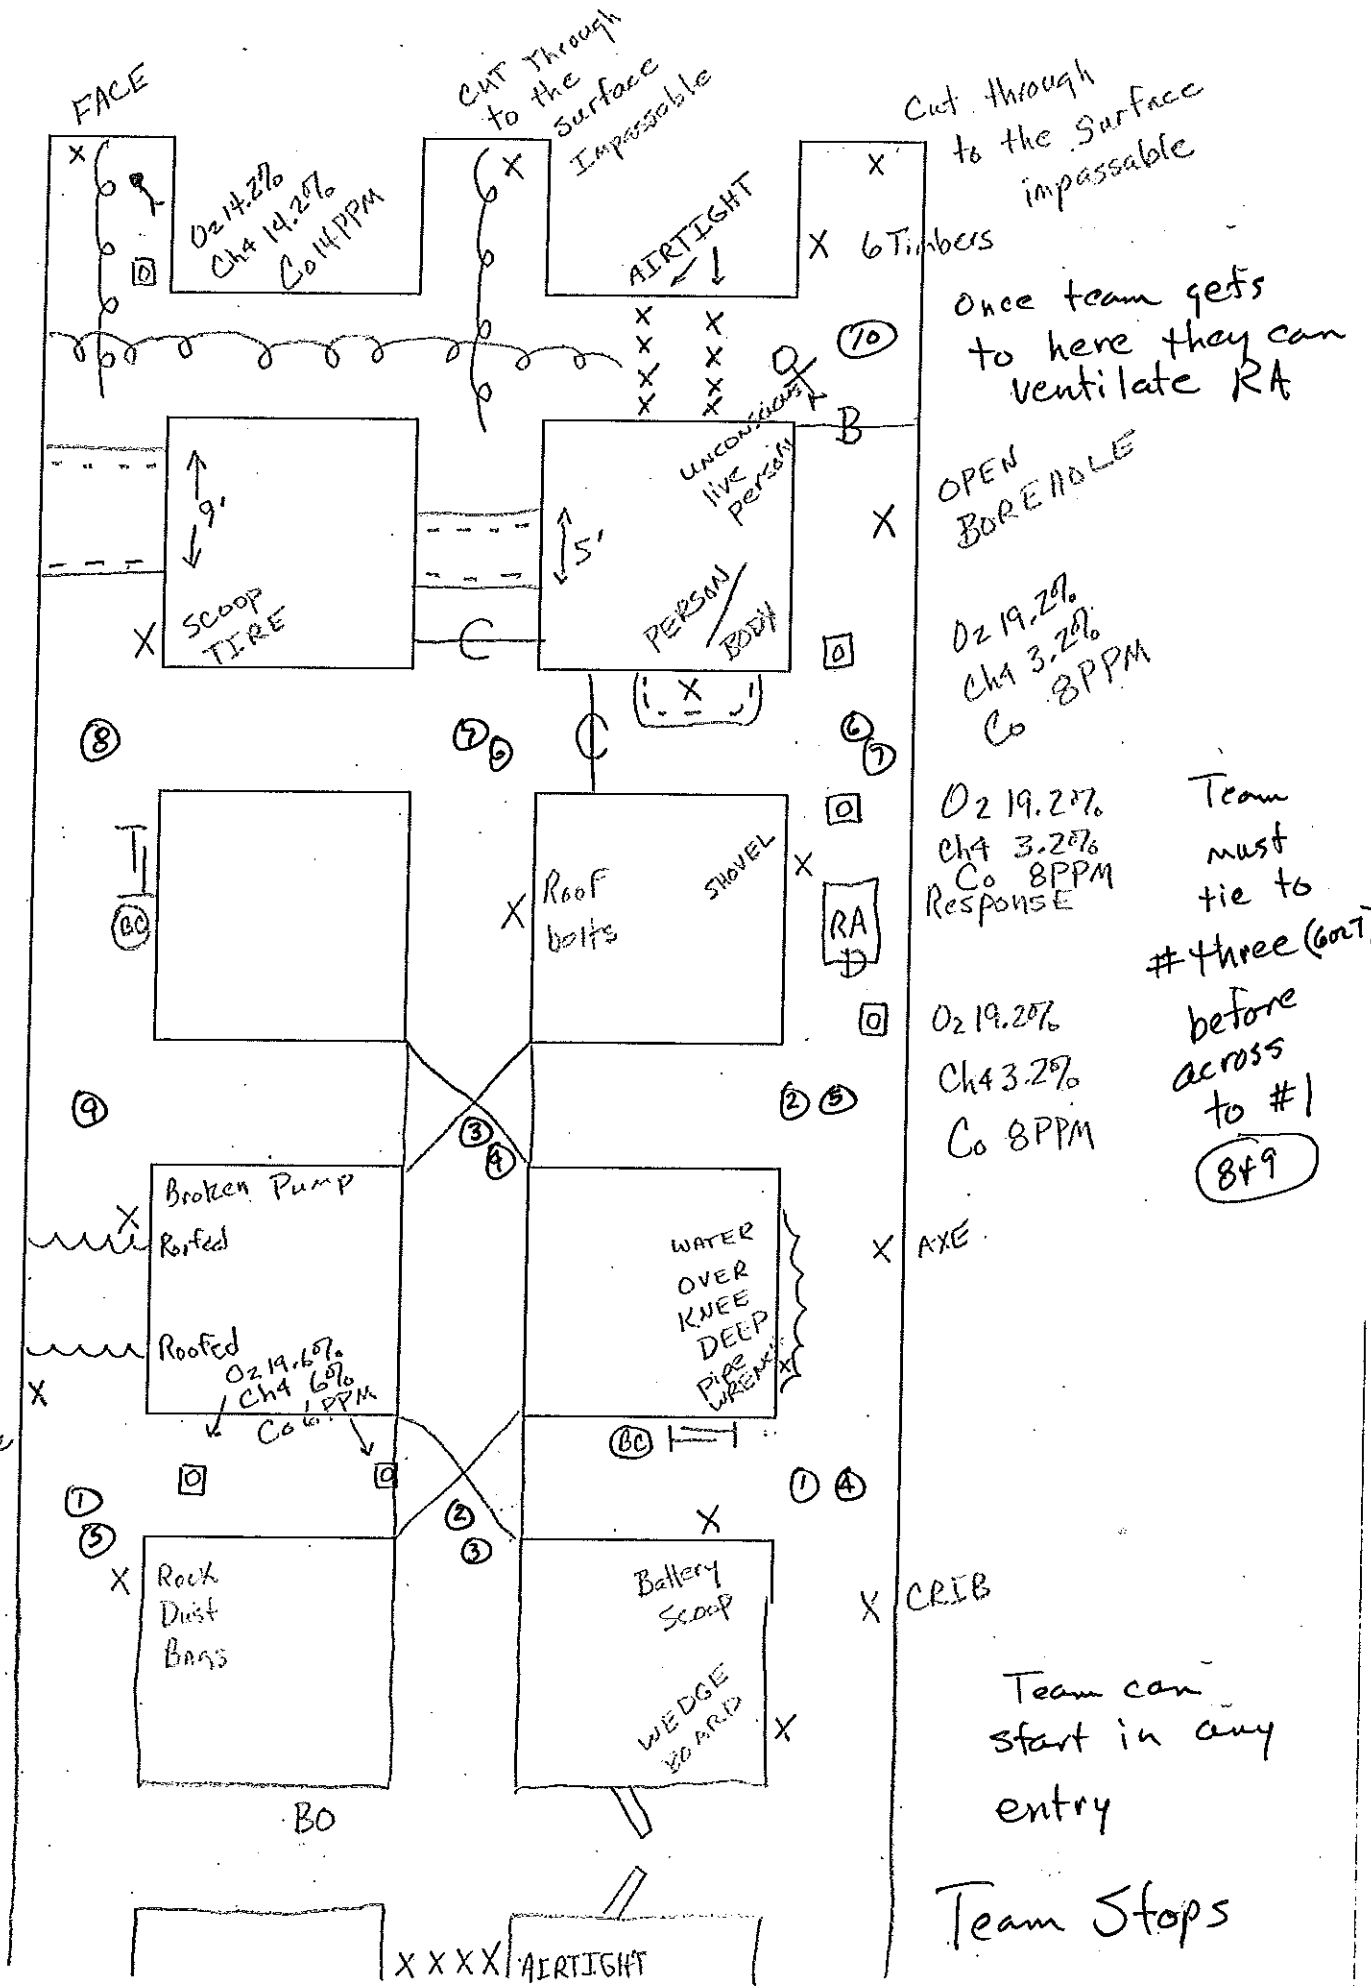 FACE
CUT Through
to the
surface
Impassable
Cut through
to the surface
impassable
X
X
X
O2 14.2%
Ch4 14.2%
Co 14 PPM
AIRTIGHT
X 6 Timbers
O
Once team gets
to here they can
ventilate RA
10
X X
X X
X X
X X
UNCONSCIOUS
live
person
B
OPEN
BOREHOLE
9'
5'
X
SCOOP
TIRE
X
C
PERSON/
BODY
O
O2 19.2%
Ch4 3.2%
Co 8PPM
X
C
8
7
6
6
7
O
O2 19.2%
Ch4 3.2%
Co 8PPM
Response
Team
must
tie to
# three (6 or 7)
before
across
to #1
8 & 9
BC
X Roof
bolts
SHOVEL
X
RA
D
O
O2 19.2%
Ch4 3.2%
Co 8PPM
9
3
4
2 5
Broken Pump
X
Roofed
Roofed
X
WATER
OVER
KNEE
DEEP
Pipe
WRENCH
X
X AXE
O2 19.6%
Ch4 6%
Co 6 PPM
O
O
BC
1
5
2
3
1 4
X
X Rock
Dust
Bags
Battery
Scoop
X CRIB
WEDGE
BOARD
X
Team can
start in any
entry
BO
Team Stops
XXXX AIRTIGHT